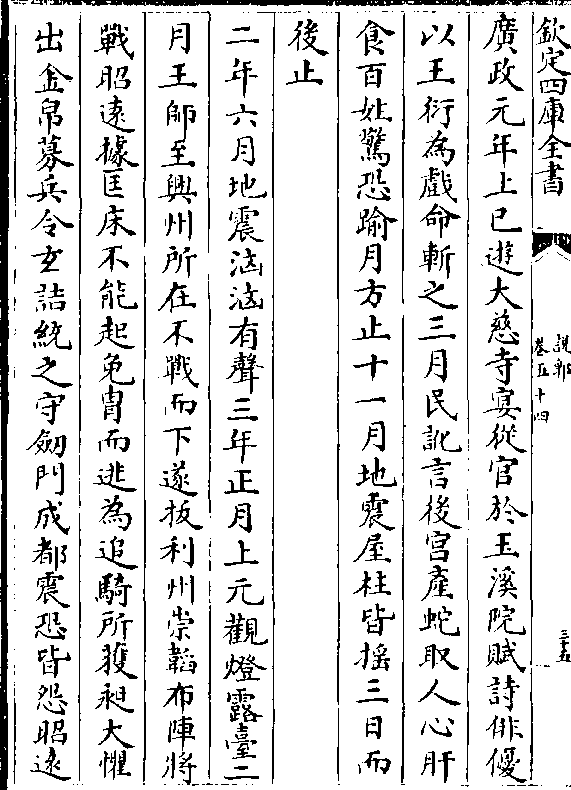 欽定四庫全書
說郛
卷五十四
三十五
廣政元年上巳遊大慈寺宴從官於玉溪院賦詩俳優
以王衍為戲命斬之三月民訛言後宮產蛇取人心肝
食百姓驚恐踰月方止十一月地震屋柱皆搖三日而
後止
二年六月地震洶洶有聲三年正月上元觀燈露臺二
月王師至興州所在不戰而下遂拔利州崇韜布陣將
戰昭遠據匡床不能起免胄而逃為追騎所獲昶大懼
出金帛募兵令玄喆統之守劔門成都震恐皆怨昭遠